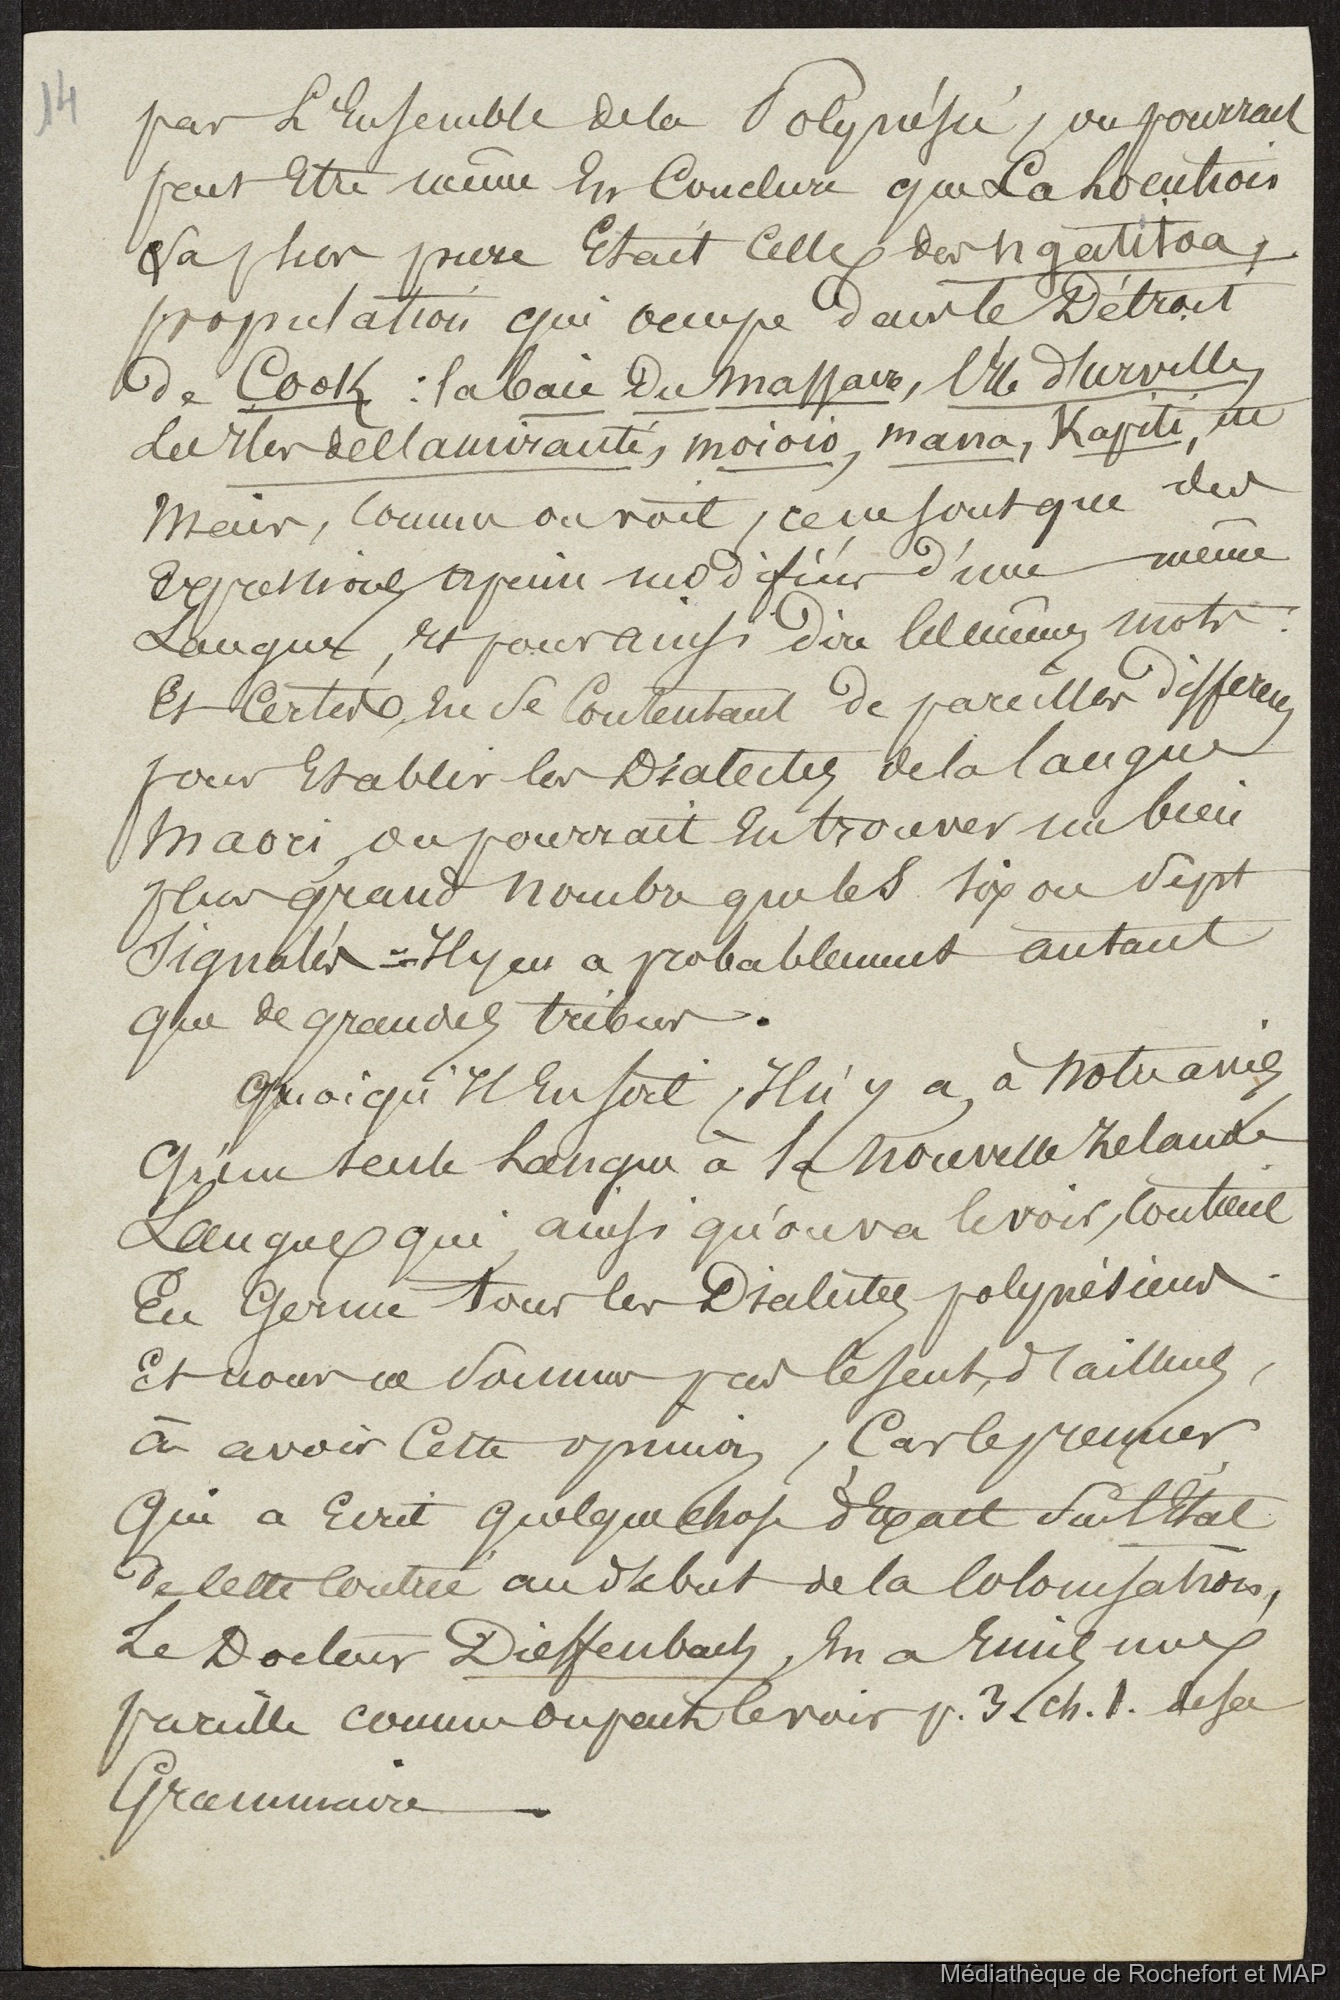 14
par L'Ensemble de la Polynésie, on pourrait
peut Etre même En Conclure que La Locution
La plus pure Etait Celle des ngatitoa,
population qui occupe dans le Détroit
de Cook : la baie Du massacre, l'Ile d'urville,
Les Iles de l'amirauté, moioio, mana, Kapiti, 
Mais, Comme on voit, ce ne sont que des
Expressions à peine modifiées d'une même
Langue, et pour ainsi dire les mêmes mots :
Et Certes, En se Contentant de pareilles differences
pour Etablir les Dialectes de la langue
Maori, on pourrait En trouver un bien
plus grand nombre que les six ou sept
signalés = Il y en a probablement autant
que de grandes tribus.
Quoiqu'Il En soit, Il n'y a, à Notre avis,
Qu'une seule Langue à la Nouvelle Zelande
Langue qui, ainsi qu'on va le voir, Contient
En Germe tous les Dialectes polynésiens.
Et nous ne sommes pas le seul, d'ailleurs,
à avoir Cette opinion, Car le premier
Qui a Ecrit quelque chose d'Exact sur l'Etat
de Cette Contrée au début de la Colonisation,
Le Docteur Dieffenbach, En a Emis une
pareille comme on peut le voir p. 3, ch. 1. de sa
Grammaire
Médiathèque de Rochefort et MAP